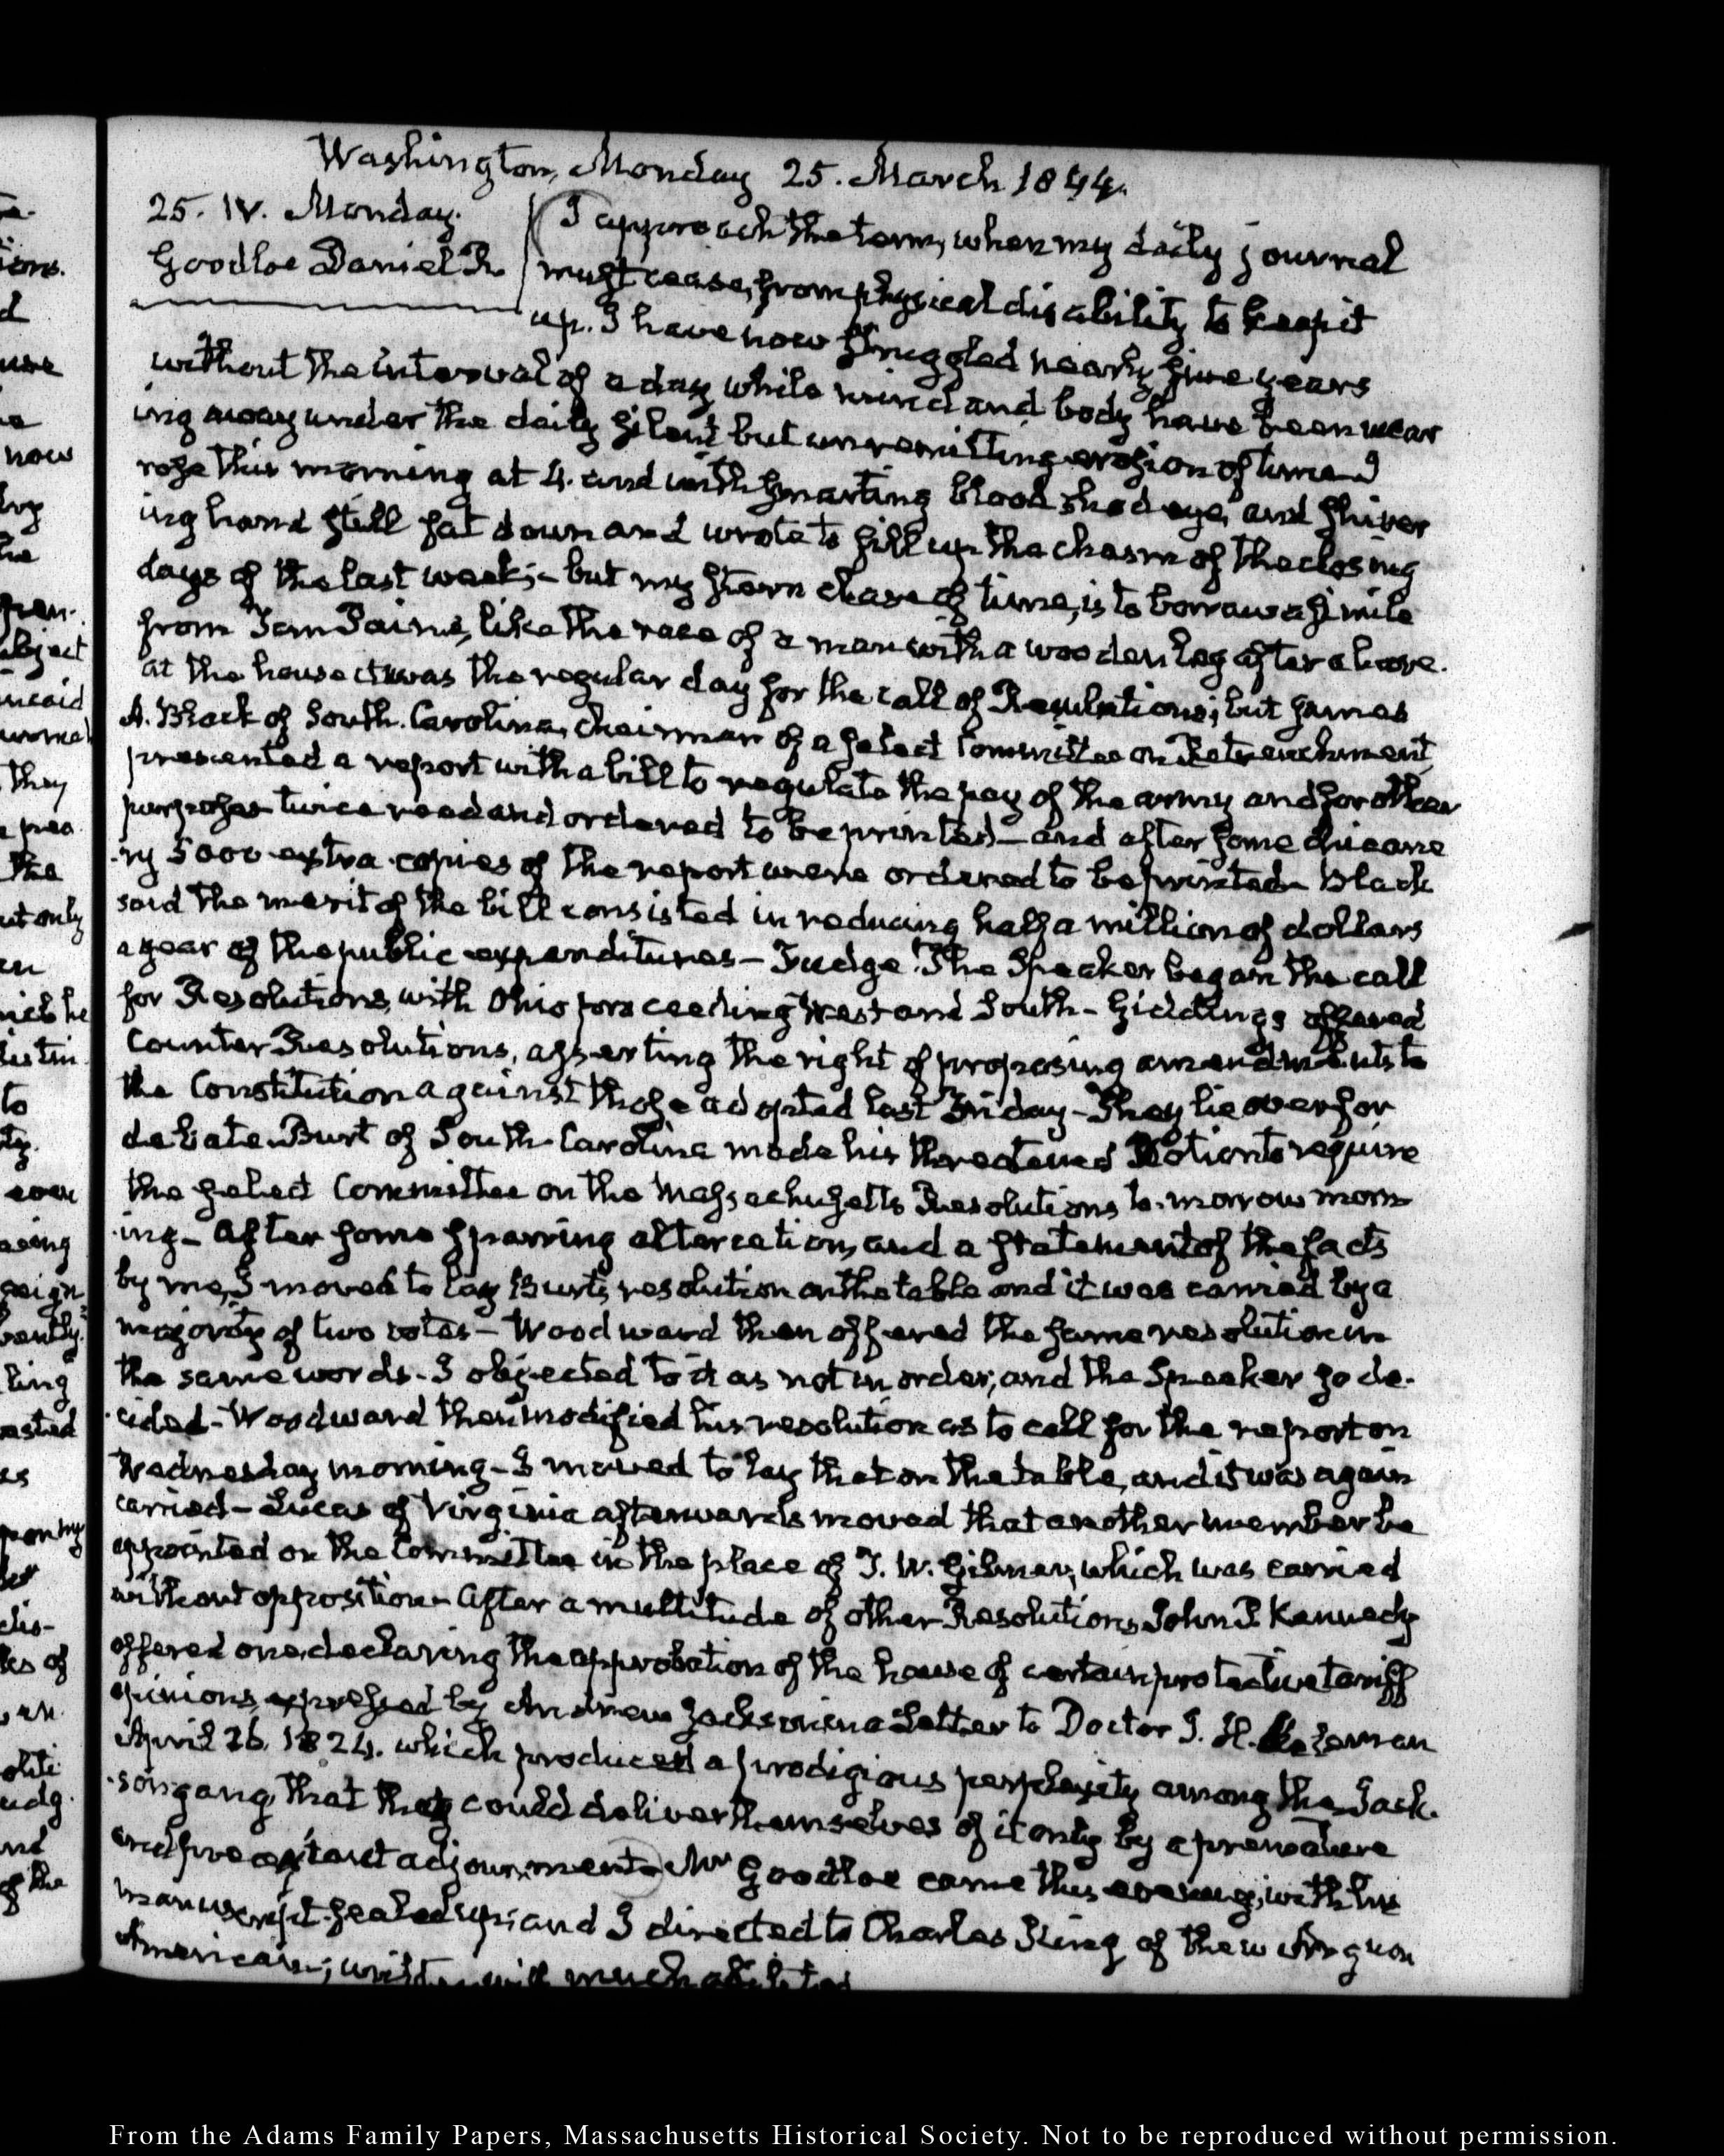 Washington, Monday 25. March 1844.
25. IV. Monday.
Goodloe Daniel R.
I approach the term, when my daily journal
must cease, from physical disability to keep it
up. I have now struggled nearly five years
without the interval of a day while mind and body have been wear
ing away under the daily silent but unremitting erosion of time. I
rose this morning at 4. and with smarting blood shed eye, and shiver
ing hand still sat down and wrote to fill up the chasm of the closing
days of the last week;- but my stern chase of time, is to borrow a simile
from Tom Paine, like the race of a man with a wooden leg after a horse.
at the house it was the regular day for the call of Resolutions; but James
A. Black of South-Carolina, chairman of a select Committee on Retrenchment,
presented a report with a bill to regulate the pay of the army and for other
purposes twice read and ordered to be printed- and after some chicane
-ry 5000 extra copies of the report were ordered to be printed- Black
said the merit of the bill consisted in reducing half a million of dollars
a year of the public expenditures- Fudge. The Speaker began the call
for Resolutions, with Ohio proceeding West and South- Giddings offered
Counter Resolutions, asserting the right of proposing amendments to
the Constitution against those adopted last Friday- They lie over for
debate. Burt of South-Carolina made his threatened Motion to require
the select Committee on the Massachusetts Resolutions to-morrow morn
-ing- After some sparring altercation, and a statement of the facts
by me, I moved to lay Burt's resolution on the table and it was carried by a
majority of two votes- Woodward then offered the same resolution in
the same words- I objected to it as not in order, and the Speaker so de-
-cided- Woodward then modified his resolution as to call for the report on
Wednesday morning- I moved to lay that on the table, and it was again
carried- Lucas of Virginia afterwards moved that another member be
appointed on the Committee in the place of T. W. Gilmer, which was carried
without opposition- After a multitude of other Resolutions John P. Kennedy
offered one, declaring the approbation of the house of certain protective tariff
opinions, expressed by Andrew Jackson in a Letter to Doctor L. H. Coleman
April 26. 1824. which produced a prodigious perplexity among the Jack-
-son gang, that they could deliver themselves of it only by a premature
and adjournment. Mr Goodloe came this evening, with his
manuscript sealed up; and I directed to Charles King of the
American; written with much ability
From the Adams Family Papers, Massachusetts Historical Society. Not to be reproduced without permission.